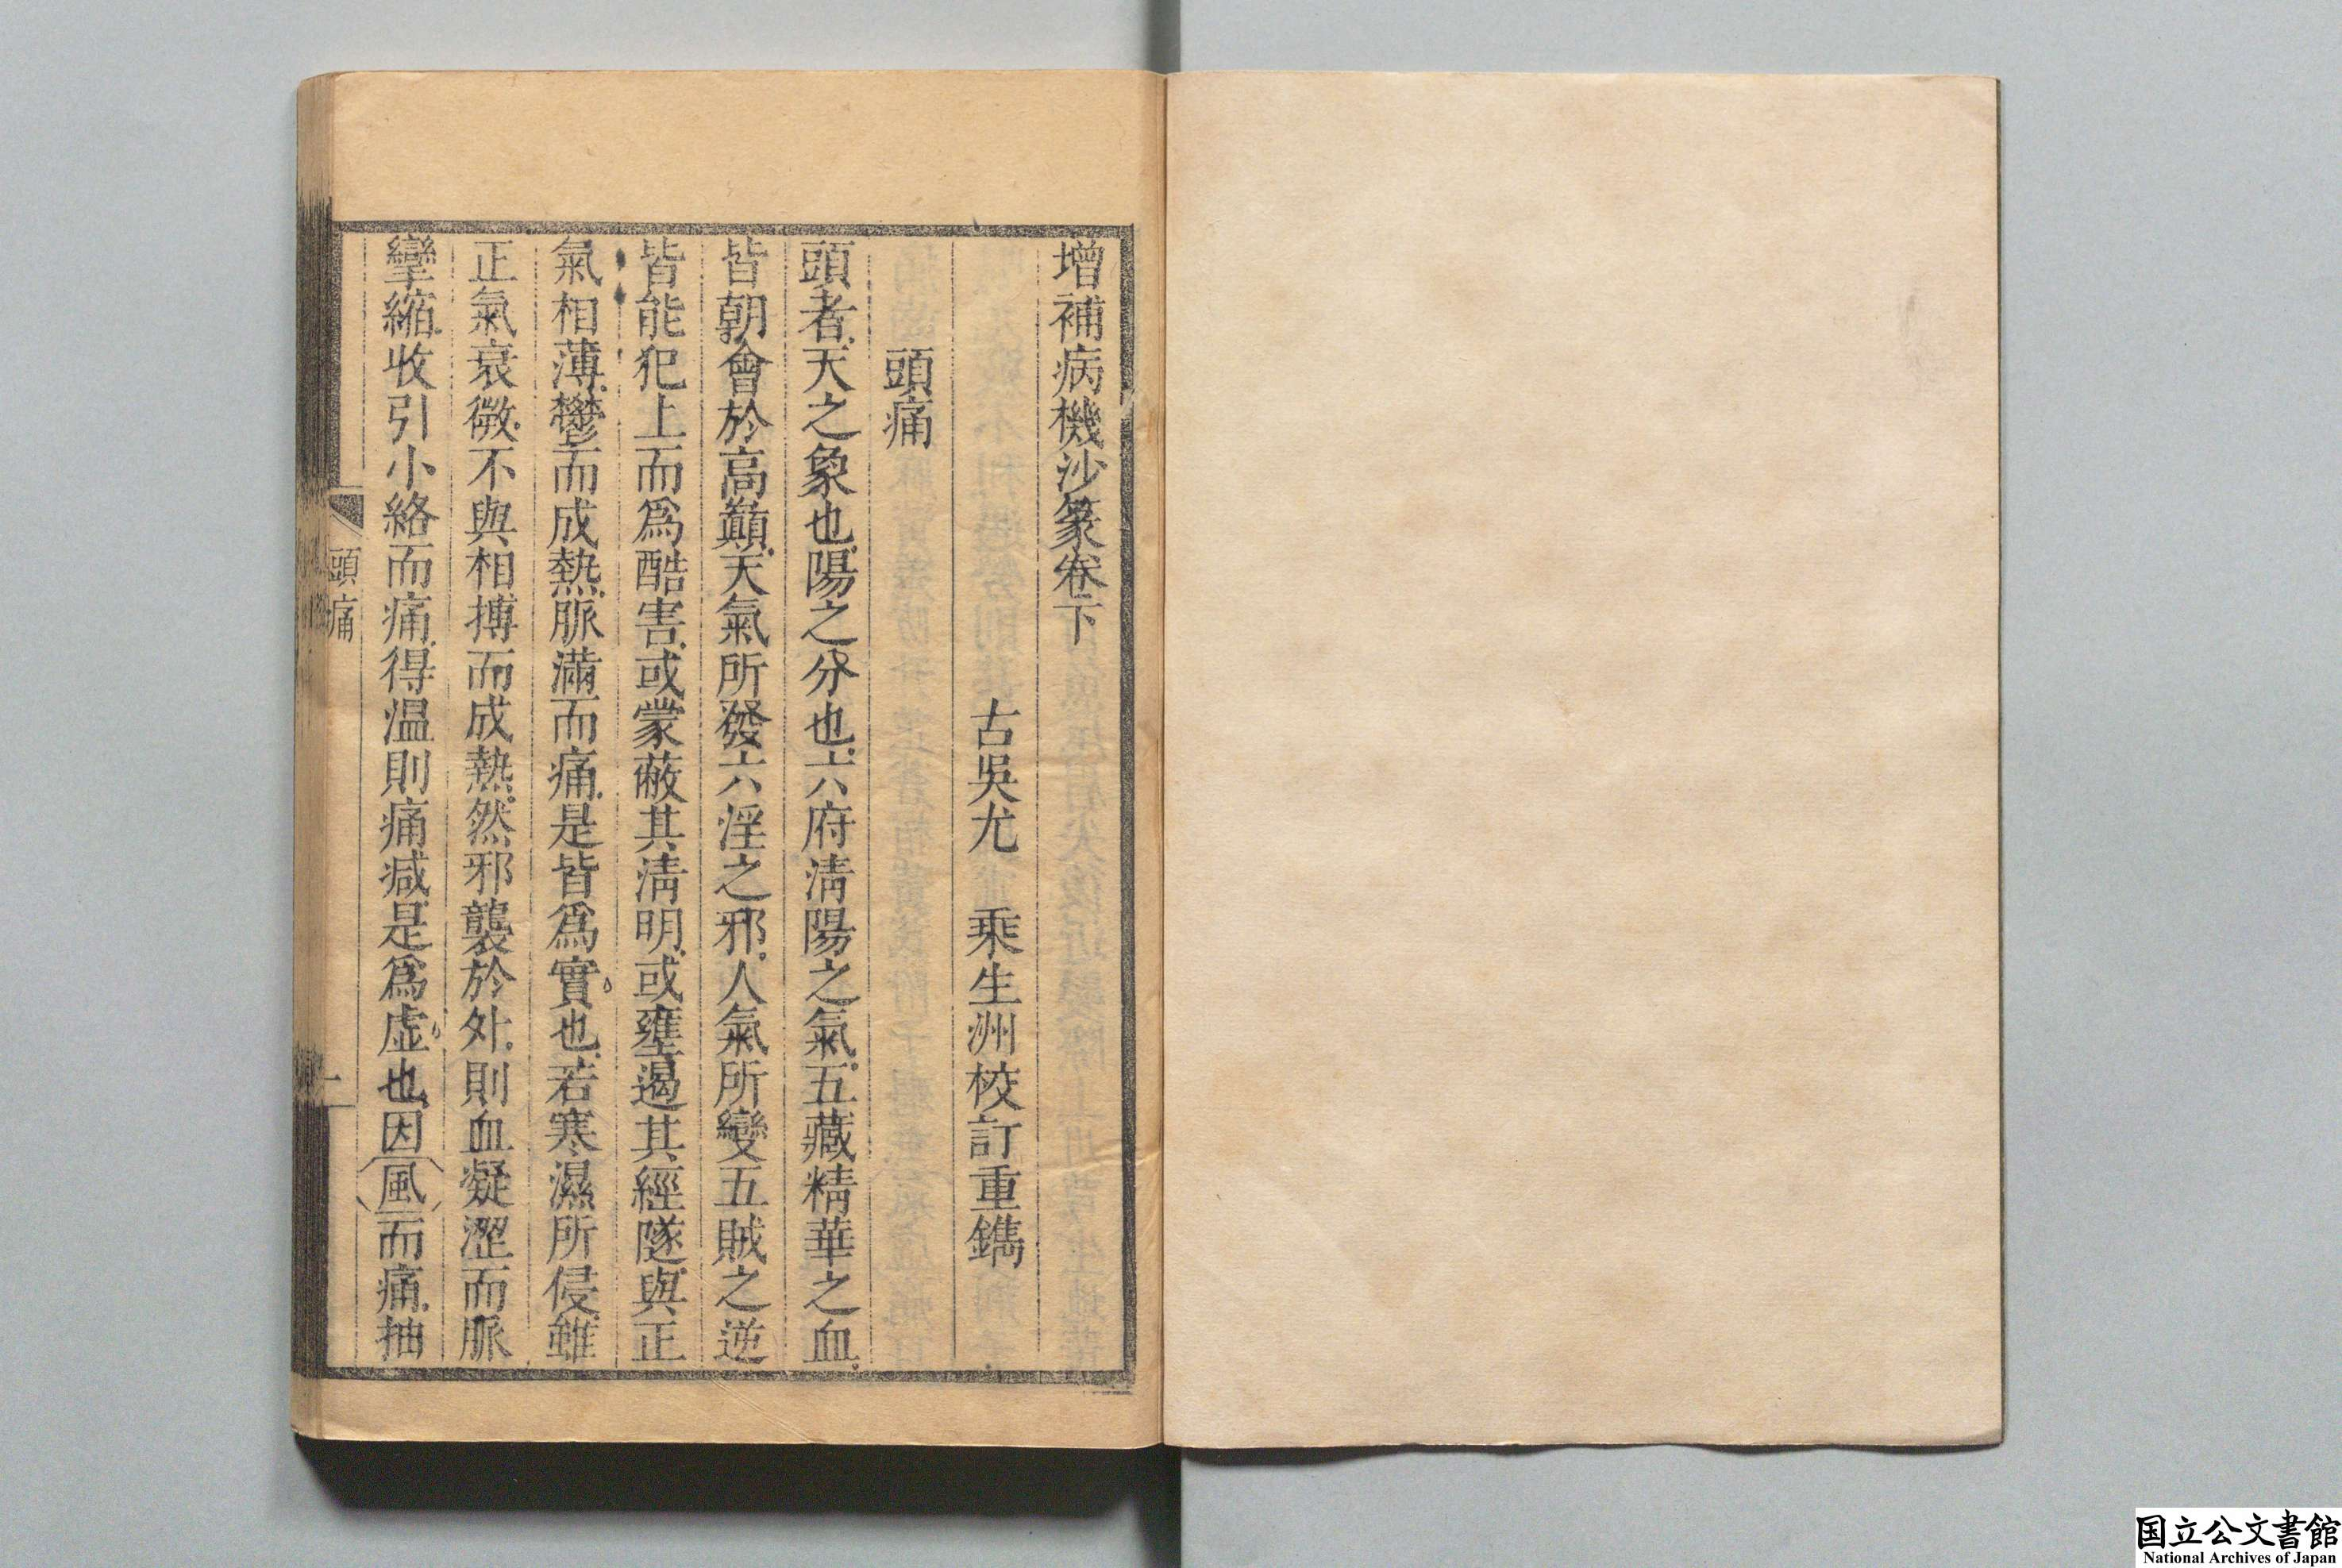 增補病機沙篆卷下
古吳尤　乘生洲校訂重鐫
頭痛
頭者天之象也陽之分也六府清陽之氣五藏精華之血
皆朝會於高巔天氣所發六淫之邪人氣所變五賊之逆
皆能犯上而爲酷害或蒙蔽其清明或壅遏其經隧與正
氣相薄鬱而成熱脈滿而痛是皆爲實也若寒濕所侵雖
正氣衰微不與相搏而成熱然邪襲於外則血凝澀而脈
攣縮收引小絡而痛得溫則痛減是爲虛也因風而痛抽
頭痛
一
国立公文書館
National Archives of Japan